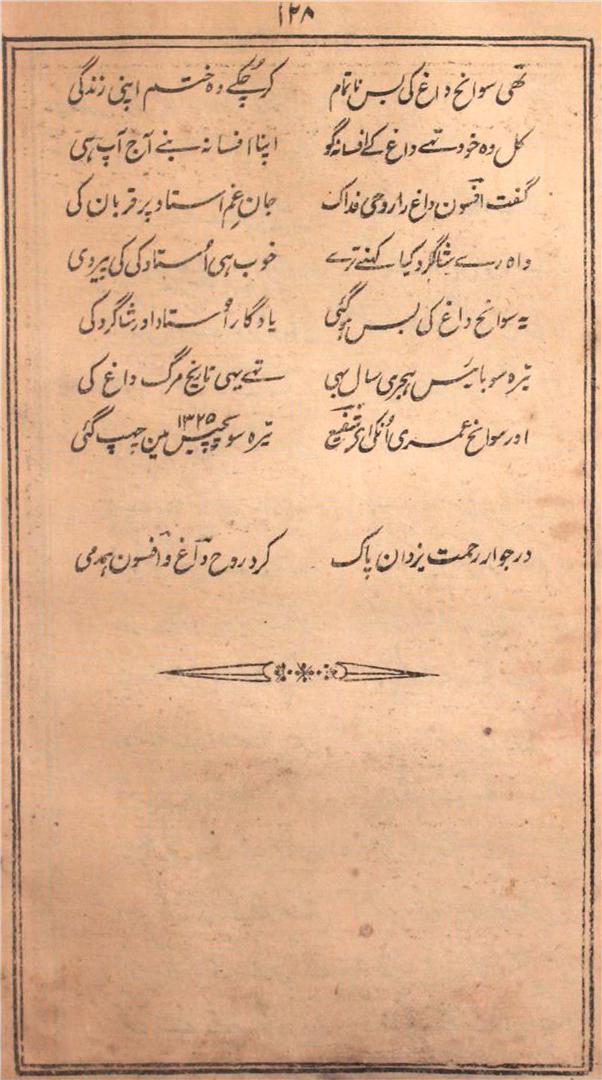 ۱۲۸
تھی سوانح داغ کی بس ناتمام کر چُکے وہ ختم اپنی زندگی
کل وہ خود تھے داغ کے افسانہ گو اپنا افسانہ بنے آج آپ ہی
گفت افسون داغ را روحی فداک جان غمِ استاد پر قربان کی
واہ رے شاگرد کیا کہنے ترے خوب ہی اُستاد کی کی پیروی
یہ سوانح داغ کی بس ہوگئی یادگار اُستاد اور شاگرد کی
تیرہ سو بائیس ہجری سال ہی تھے یہی تاریخ مرگ داغ کی
اور سوانح عمری اُنکی ای شفیع تیرہ سو پچیس ۱۳۲۵ مین چھپ گئی
در جوار رحمت یزدان پاک کرد روح داغ و افسون ہمدمی